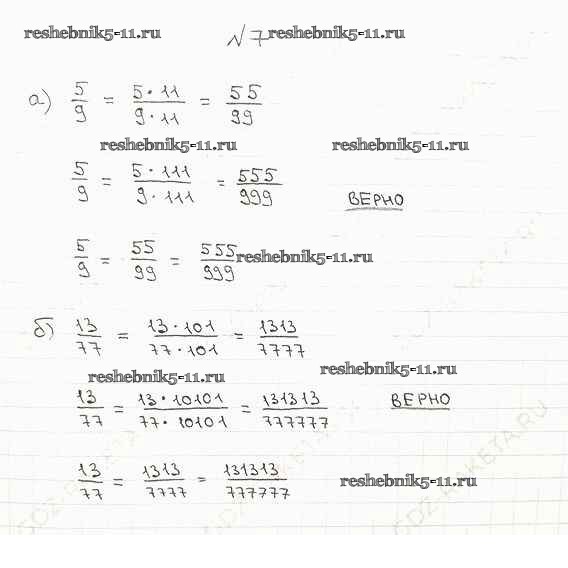 reshebnik5-11.ru № 7 reshebnik5-11.ru
а) 5/9 = 5·11/9·11 = 55/99
reshebnik5-11.ru reshebnik5-11.ru
5/9 = 5·111/9·111 = 555/999 ВЕРНО
5/9 = 55/99 = 555/999 reshebnik5-11.ru
б) 13/77 = 13·101/77·101 = 1313/7777
reshebnik5-11.ru reshebnik5-11.ru
13/77 = 13·10101/77·10101 = 131313/777777 ВЕРНО
13/77 = 1313/7777 = 131313/777777 reshebnik5-11.ru
GDZ-RAKETA.RU GDZ-RAKETA.RU GDZ-RAKETA.RU